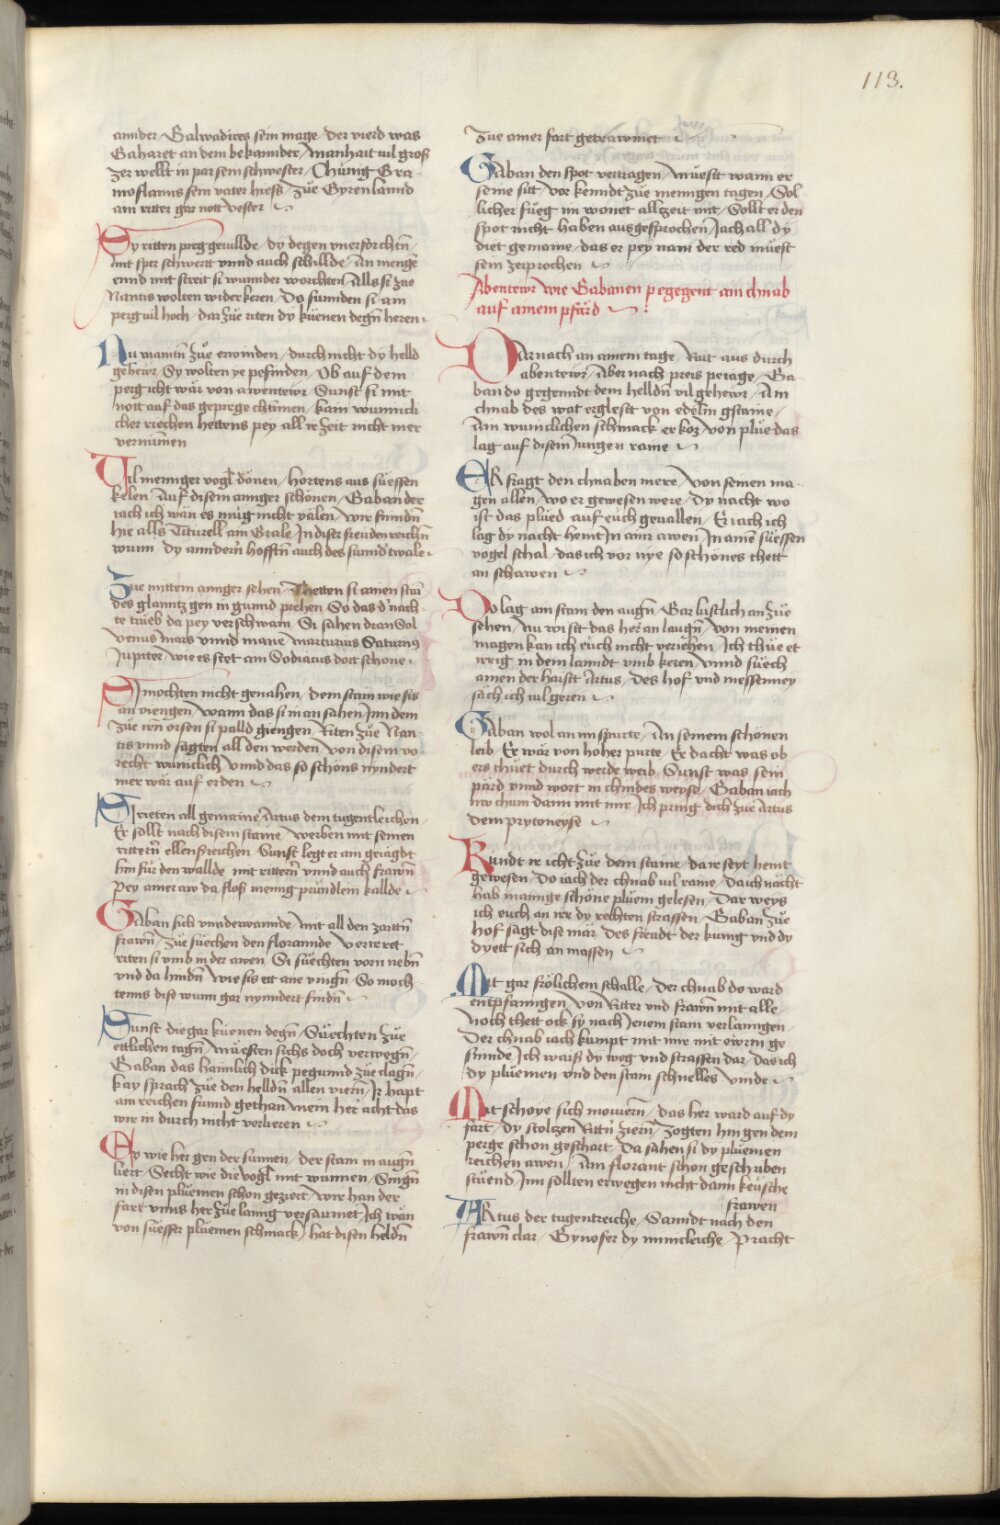 113.
annder / Galwadites sein mage / der vierd was
Gaharet an dem bekannder / Manhait vil groß
zer wellt in par sein schwester / Chünig Gra-
moflanns sein vater hiess / züe Gyren lannd
ain ritter gar nott vester
Sy ritten perg gevillde / do degen vnerforchtn̄
mit sper schwertt vnnd auch schillde / An menge
ennd mit streit si wunnder worchten / Alls si zue
Nantis wolten wider keren / Do funnden si ain
perg vil hoch / dar züe riten dy küenen degn̄ heren
Nu wanntn̄ züe erwinden / durch nicht dy helld
gehewr / Sy wolten ye pefinden / Ob auf dem
perg icht wär von awentewr / Sunst si mit
nott auf das gepirge chämen / kain wunnikli
cher riechen hettens pey all ir zeit nicht mer
vernumen
Vil menniger vogl dönen / hortens aus süessen
kelen / Auf disem annger schönen / Gaban der
iach ich wän es müg nicht välen / wir finndn̄
hie alls Titurell am Grale / In diser freuden reichn̄
wunn / dy anndern hofftn̄ auch des funnd twale
Zue mittem annger sehen / Thetten si ainen stam̄
des glanntz gen in gunnd prehen / So das d' nach-
te trüeb da pey verschwain / Si sahen dran Sol
venus Mars vnnd mane / Marcurius Saturnus
Jupiter / wie es stet am Sodiacus dort schone
Si mochten nicht genahen / dem stam wie sis
an viengen / wann das si in an sahen / Inn dem
züe irn̄ orsen si palld giengen / Riten züe Nan-
tis vnnd sagten all den werden / von disem vo
recht wunnklich / vnnd das so schons nyndert
mer wär auf erden
Si rieten all gemaine / Artus dem tugentleichen
Er sollt nach disem stame / werben mit seinen
rittern̄ ellenßreichen / Sunst legt er ain geiägdt
hin für den wallde / mit rittern vnnd auch frawn̄
Pey ainer aw da floß mennig prünndlein kallde
Gaban sich vnnderwannde / mit all den zartn̄
frawn̄ / Züe suechen den florannde / verirret
riten si vmb in der awen / Si süechten vorn nebn̄
vnd da hindn̄ / wie sis ett ane viengn̄ / So moch-
tenns dise wunn gar nynndert findn̄
Sunst die gar küenen degn̄ / Süechten züe
ettlichen tagn̄ / müesten sichs doch verwegn̄
Gaban das haimlich dick pegunnd züe clagn̄
kay sprach züe den helldn̄ allen viern̄ / Ir hapt
ain reichen funnd gethan / mein her acht das
wir in durch nicht verlieren
Ey wie her gen der sunnen / der stam in augn̄
liert / Secht wie die vogl mit wunnen / Singn̄
in disen plüemen schon geziert / wir han der
fart vnns her züe lanng versaumet / Ich wän
von süesser plüemen schmack / hat disen heldn̄
Zue ainer fart getrawmet
Gaban den spot vertragen / Müest wann er
seine sitt / vor kenndt züe mennigen tagen / Sol-
licher füeg im wonet allzeit mit / Sollt er den
spot nicht haben ausgesprochen / Iach all dy
diet gemaine / das er pey nam der red müest
sein zerprochen
Abentewr wie Gabanen pegegent ain chnab
auf ainem pfärd
Darnach an ainem tage / Rait aus durch
abentewr / Aber nach preis petage / Ga-
ban do gegenndt dem helldn̄ vil gehewr / Ain
chnab des wat erglesit von edelm gstaine
Ain wunnclichen schmack er koz von plüe das
lag auf disem Jungen raine
Er fragt den chnaben mere / von seinen ma-
gen allen / wo er gewesen were / Dy nacht wo
ist das plüed auf euch geuallen / Er iach ich
lag dy nacht heint In ainr awen / In ainē süessen
vogel schal / das ich vor nye so schönes thett
an schawen
Do lag ain stam den augn̄ / Gar lustlich an züe
sehen / Nu wisst das her an laugn̄ / von meinen
magen kan ich euch nicht veriehen / Ich thüe et
irrig in dem lanndt vmb keren / vnnd süech
ainen der haisst Artus / Des hof vnd messenney
säch ich vil geren
Gaban wol an im spurte / An seinem schönen
leib / Er wär von hoher purte / Er dacht was ob
ers thüet durch werde weib / Sunst was sein
pärd vnnd wort in chindes weyse / Gaban iach
nw chum dann mit mir / Ich pring dich züe Artus
dem prytoneyse
Kundt ir icht züe dem stame / da ir seyt heint
gewesen / Do iach der chnab vil raine / Da ich nächt
hab mannige schöne pluem gelesen / Dar weys
ich euch an irr dy rechten strassen / Gaban züe
hof sagt dise mär / Des freudt der kunig vnd dy
dyett sich an massen
Mit gar frölichem schalle / Der chnab do ward
entpfanngen / von Ritter vnd frawn̄ mit alle
Noch thett ock sy nach Jenem stam verlanngen
Der chnab iach kumpt mit mir mit ewrm ge-
sinnde / Ich waiß dy weg vnd strassen dar / Das ich
dy plüemen vnd den stam schnelles vinde
Mit schoye sich mouiern̄ / das her ward auf dy
fart / dy stoltzen Rittn̄ ziern̄ / Zogten hin gen dem
perge schon geschart / Da sahen si dy plüemen
reichen awen / Ain florant schon geschuben
stüend / Inn sollten erwegen nicht dann keusche
frawen
Artus der tugentreiche / Sanndt nach den
frawn̄ clar / Gynofer dy minncleiche / Pracht